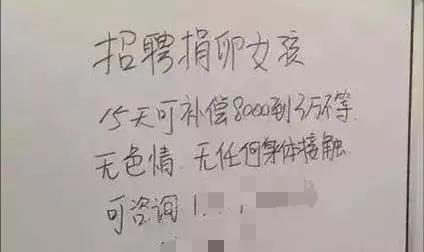 招聘捐卵女孩
15天可补偿8000到3万不等
无色情、无任何身体接触
可咨询1